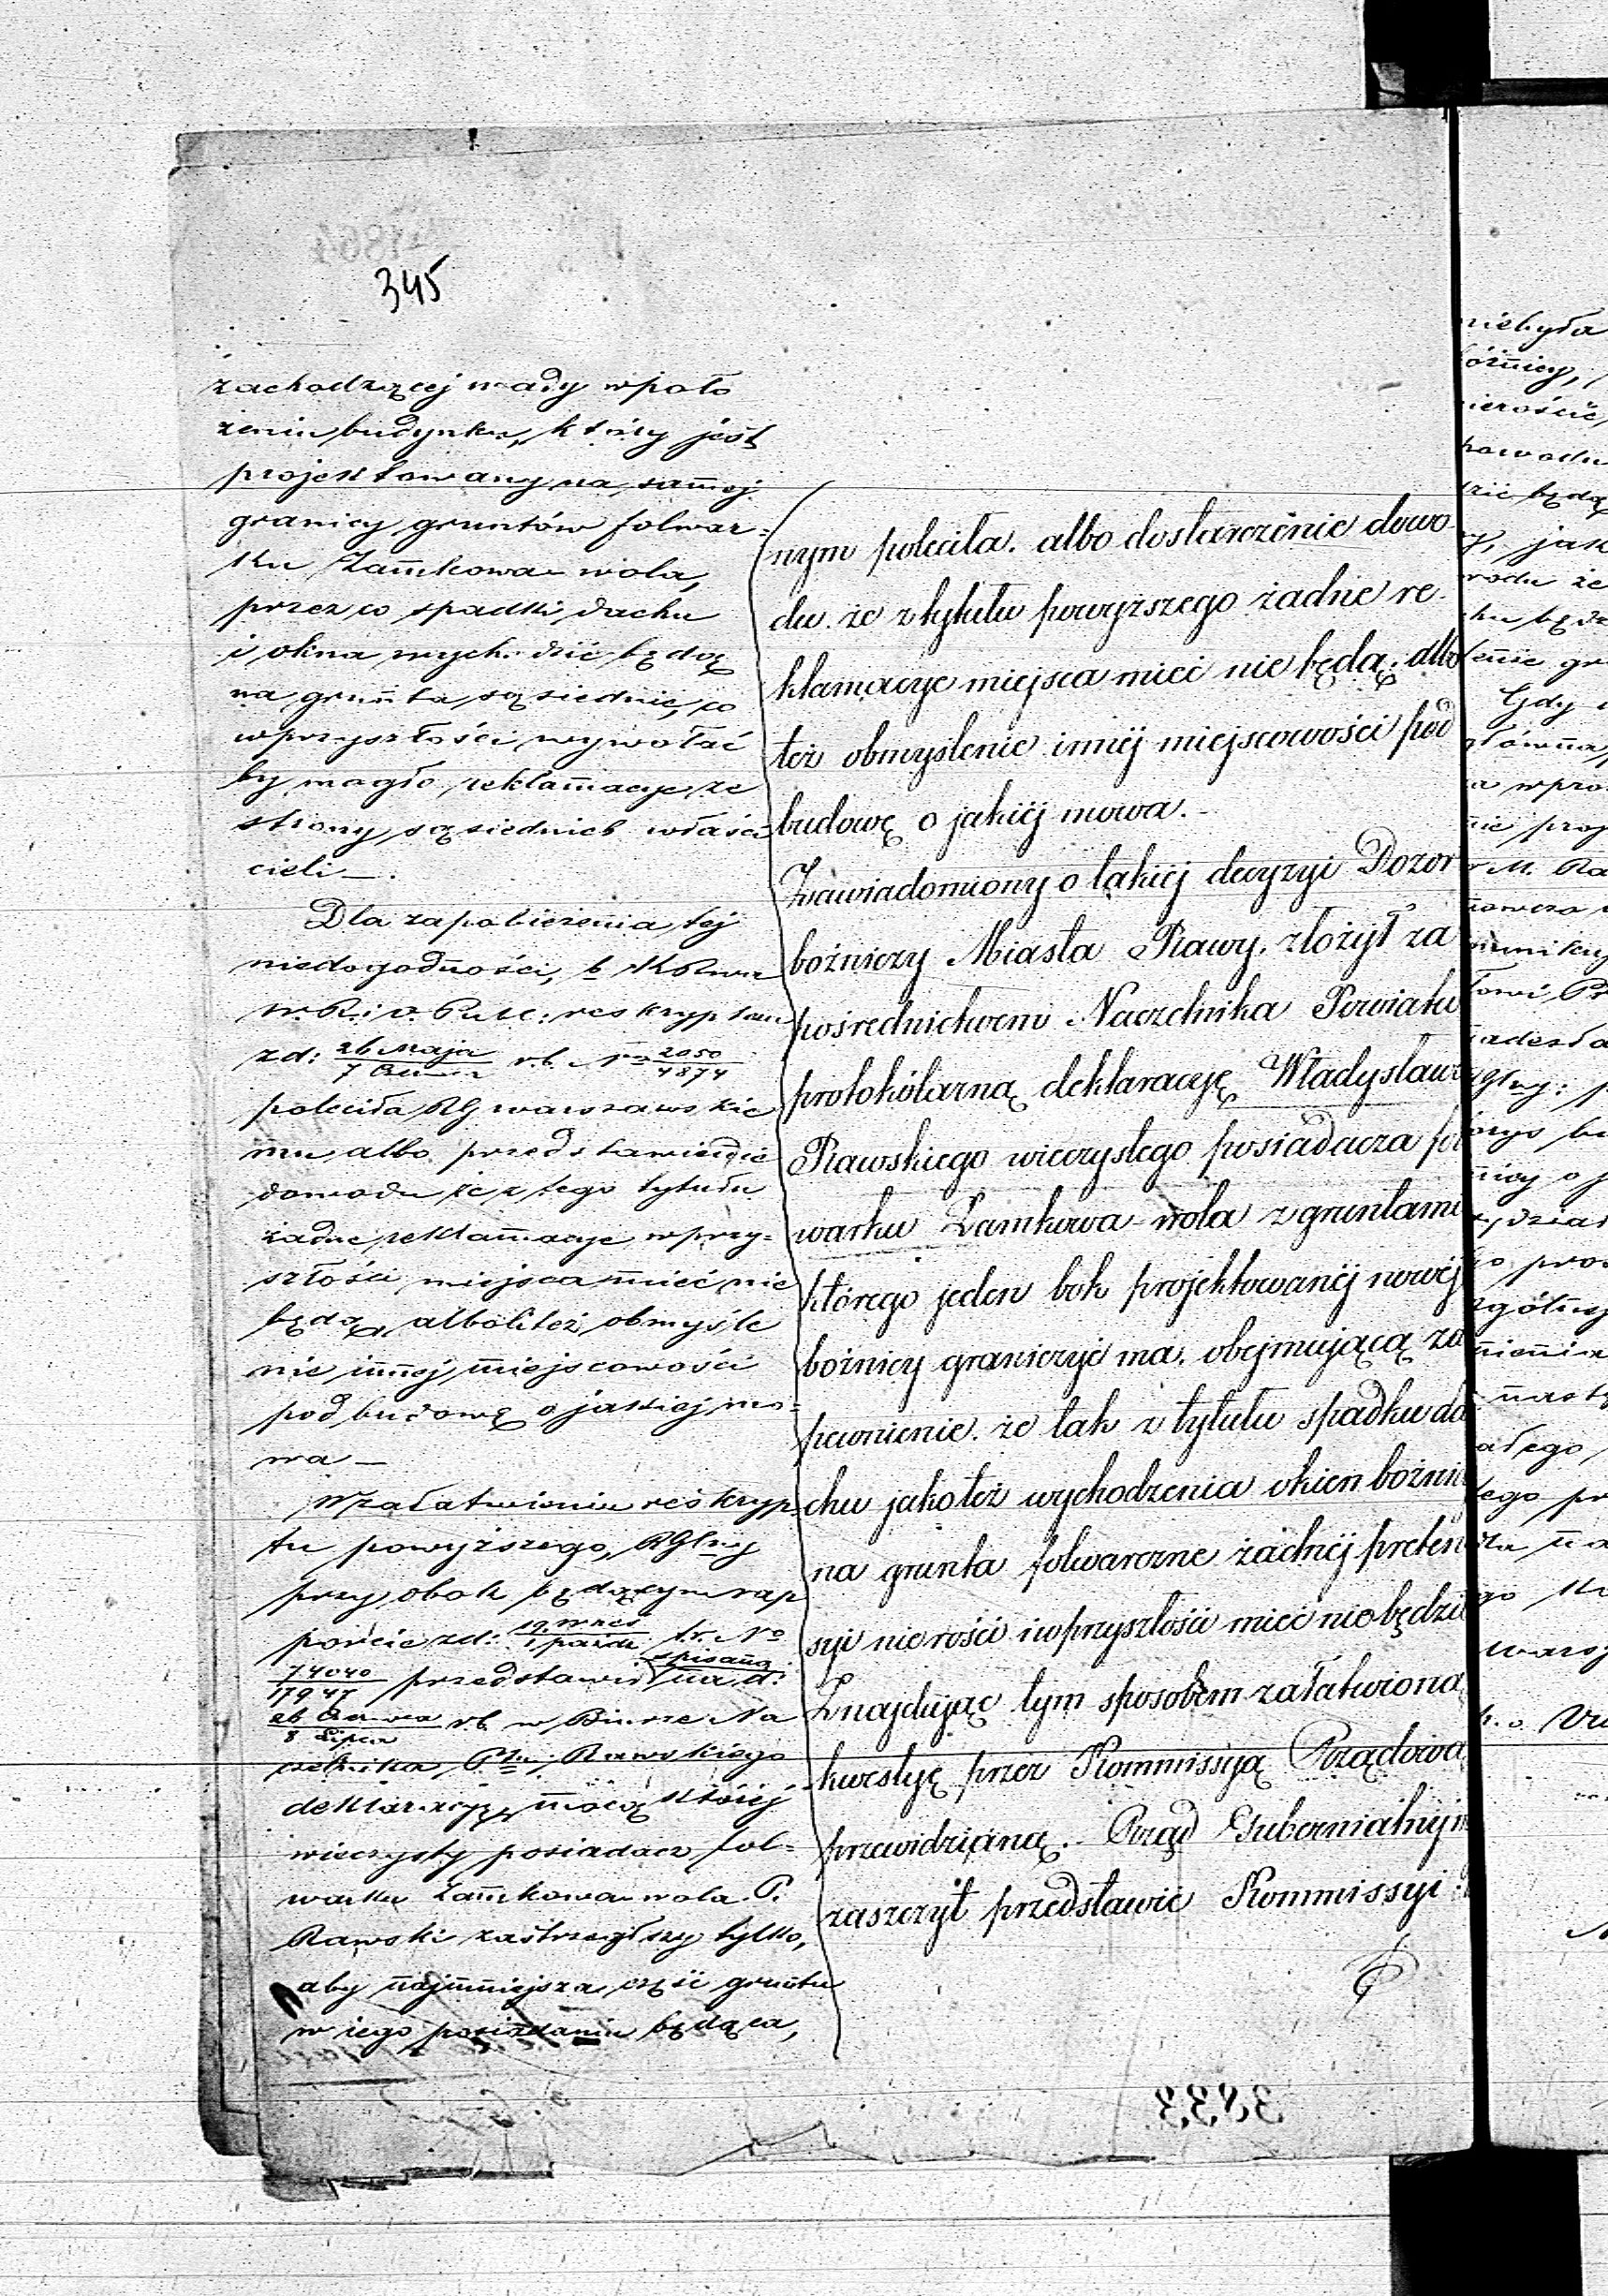 345
zachodzącej wady w poło
żeniu budynku, który jest
projektowany na samej
granicy gruntów folwar=
ku Zamkowa-wola,
przez co spadki dachu
i okna wychodzić będą
na grunta sąsiednie, co
w przyszłości wywołać
by mogło reklamacye ze
strony sąsiednich właści
cieli —.
Dla zapobieżenia tej
niedogodności, b.
W. R. i O. Publ: reskryptem
zd: 26 Maja / 7 Czerwca r.b. No 2050 / 4874
poleciła RG warszawskie
mu albo przedstawienie
dowodu że z tego tytułu
żadne reklamacye w przy=
szłości miejsca mieć nie
będą, albo też obmyśle
nie innej miejscowości
pod budowę o jakiej mo=
wa —
W załatwieniu reskryp
tu powyższego, RGlny
przy obok będącym rap
porcie zd: 19 Wrześ / 1 Paźdz t.r. No
74040 / 17947 przedstawił spisaną na d:
26 Czerwca / 8 Lipca r.b. w Biurze Na
czelnika Ptu Rawskiego
deklaracyę, mocą której
wieczysty posiadacz fol=
warku Zamkowa wola P.
Rawski zastrzegłszy tylko,
aby najmniejsza część gruntu
w jego posiadaniu będąca,
nym poleciła. albo dostarczenie dowo
du. że z tytułu powyższego żadne re-
klamacye miejsca mieć nie będą; albo
też obmyślenie innéj miejscowości pod
budowę o jakiéj mowa.-
Zawiadomiony o takiéj decyzyi Dozór
bożniczy Miasta Rawy, złożył za
pośrednictwem Naczelnika Powiatu
protokólarną deklaracyę Władysława
Rawskiego wieczystego posiadacza fol
warku Zamkowa-wola z gruntami
którego jeden bok projektowanéj nowéj
bożnicy graniczyć ma. obejmującą za
pewnienie. że tak z tytułu spadku da
chu jakoteż wychodzenia okien bożni
na grunta folwarczne żadnéj preten
syi nie rości i w przyszłości mieć nie będzie
Znajdując tym sposobem załatwioną
kwestyę przez Kommissyą Rządową
przewidzianą.- Rząd Gubernialny
zaszczyt przedstawić Kommissyi
3833
niebyła
żnicy,
ierości
powodu
zić będą
jak
rodu że
hu będz
enie gr
Gdy
główna
a wpro
nie proj
M. Ra
adesła
Glny:
nicy o j
go pro
nasty
ałego,
tego pr
na
go
Warsz